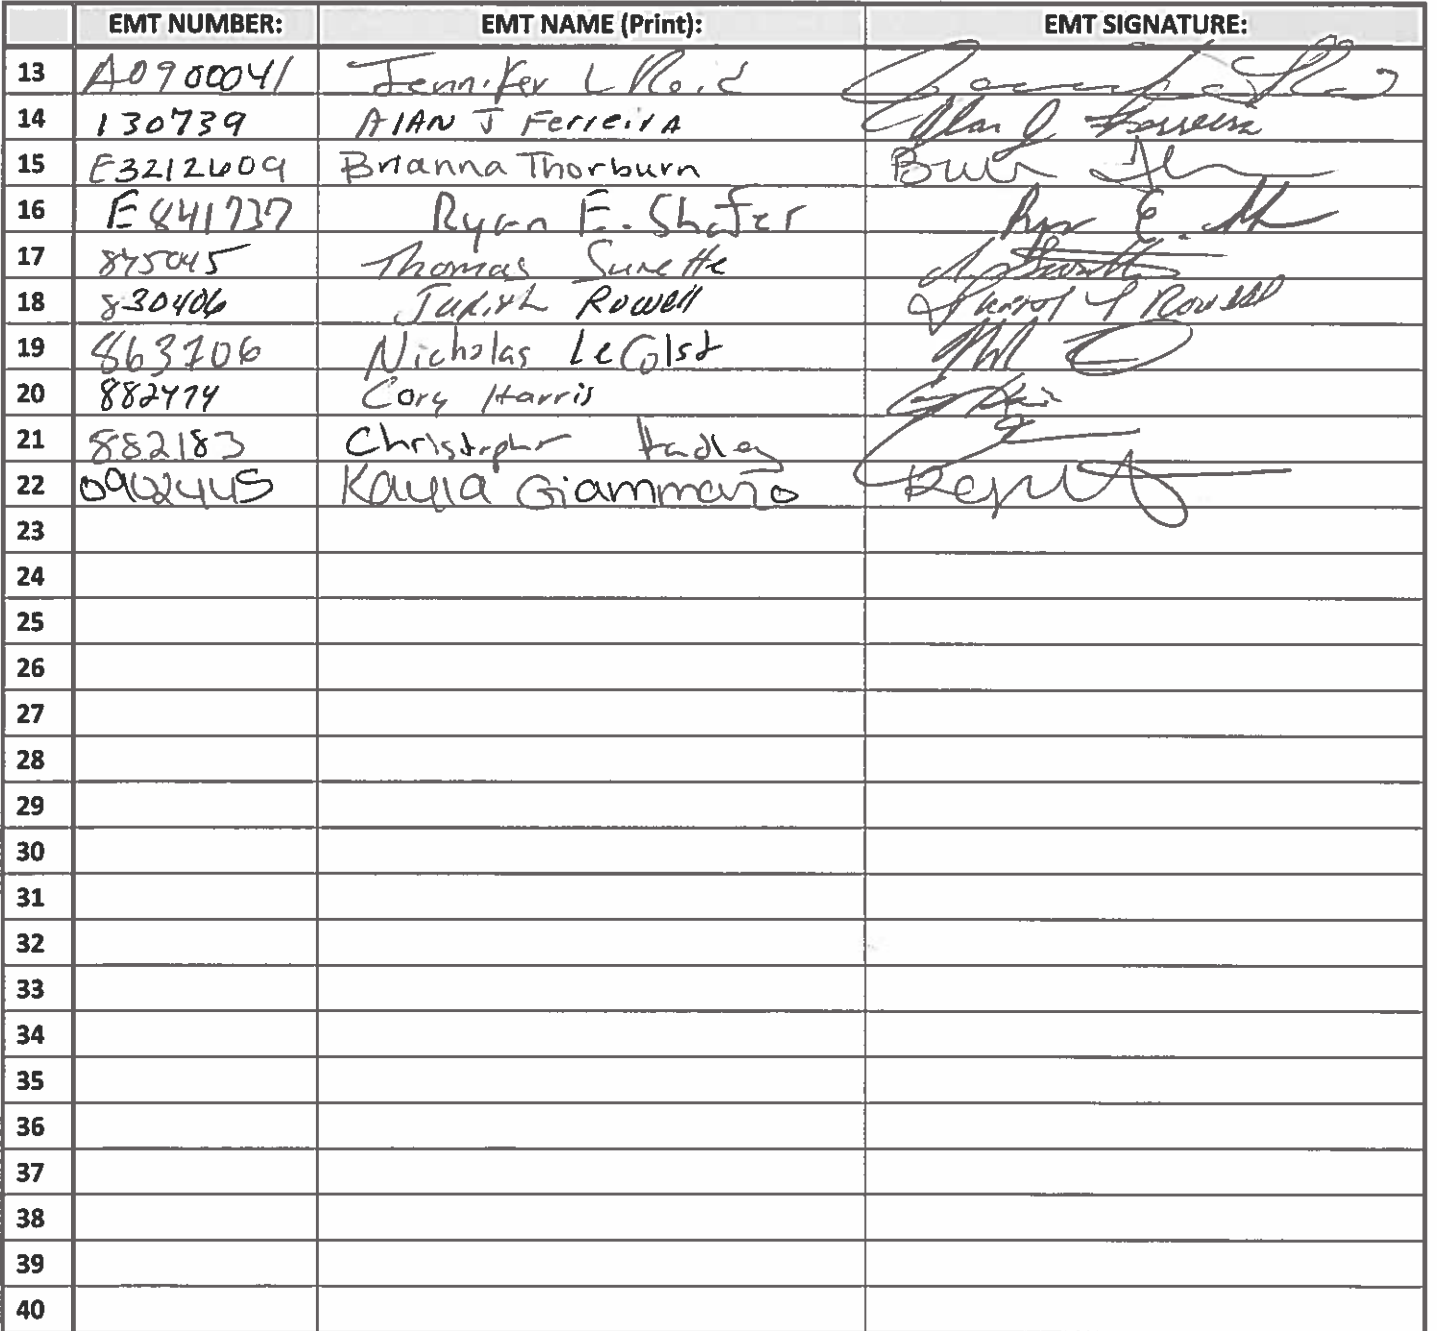 EMT NUMBER: EMT NAME (Print): EMT SIGNATURE:
13 A0900041 Jennifer L Reid
14 130739 AlAN J FerreirA Alan J Ferreira
15 E3212609 Brianna Thorburn
16 E841737 Ryan E. Shafer Ryan E.
17 875045 Thomas Surette
18 830406 Judith Rowell Rowell
19 863706 Nicholas
20 Cory Harris
21 882183 Christopher Hadley
22 Kayla Giammarjo
23
24
25
26
27
28
29
30
31
32
33
34
35
36
37
38
39
40